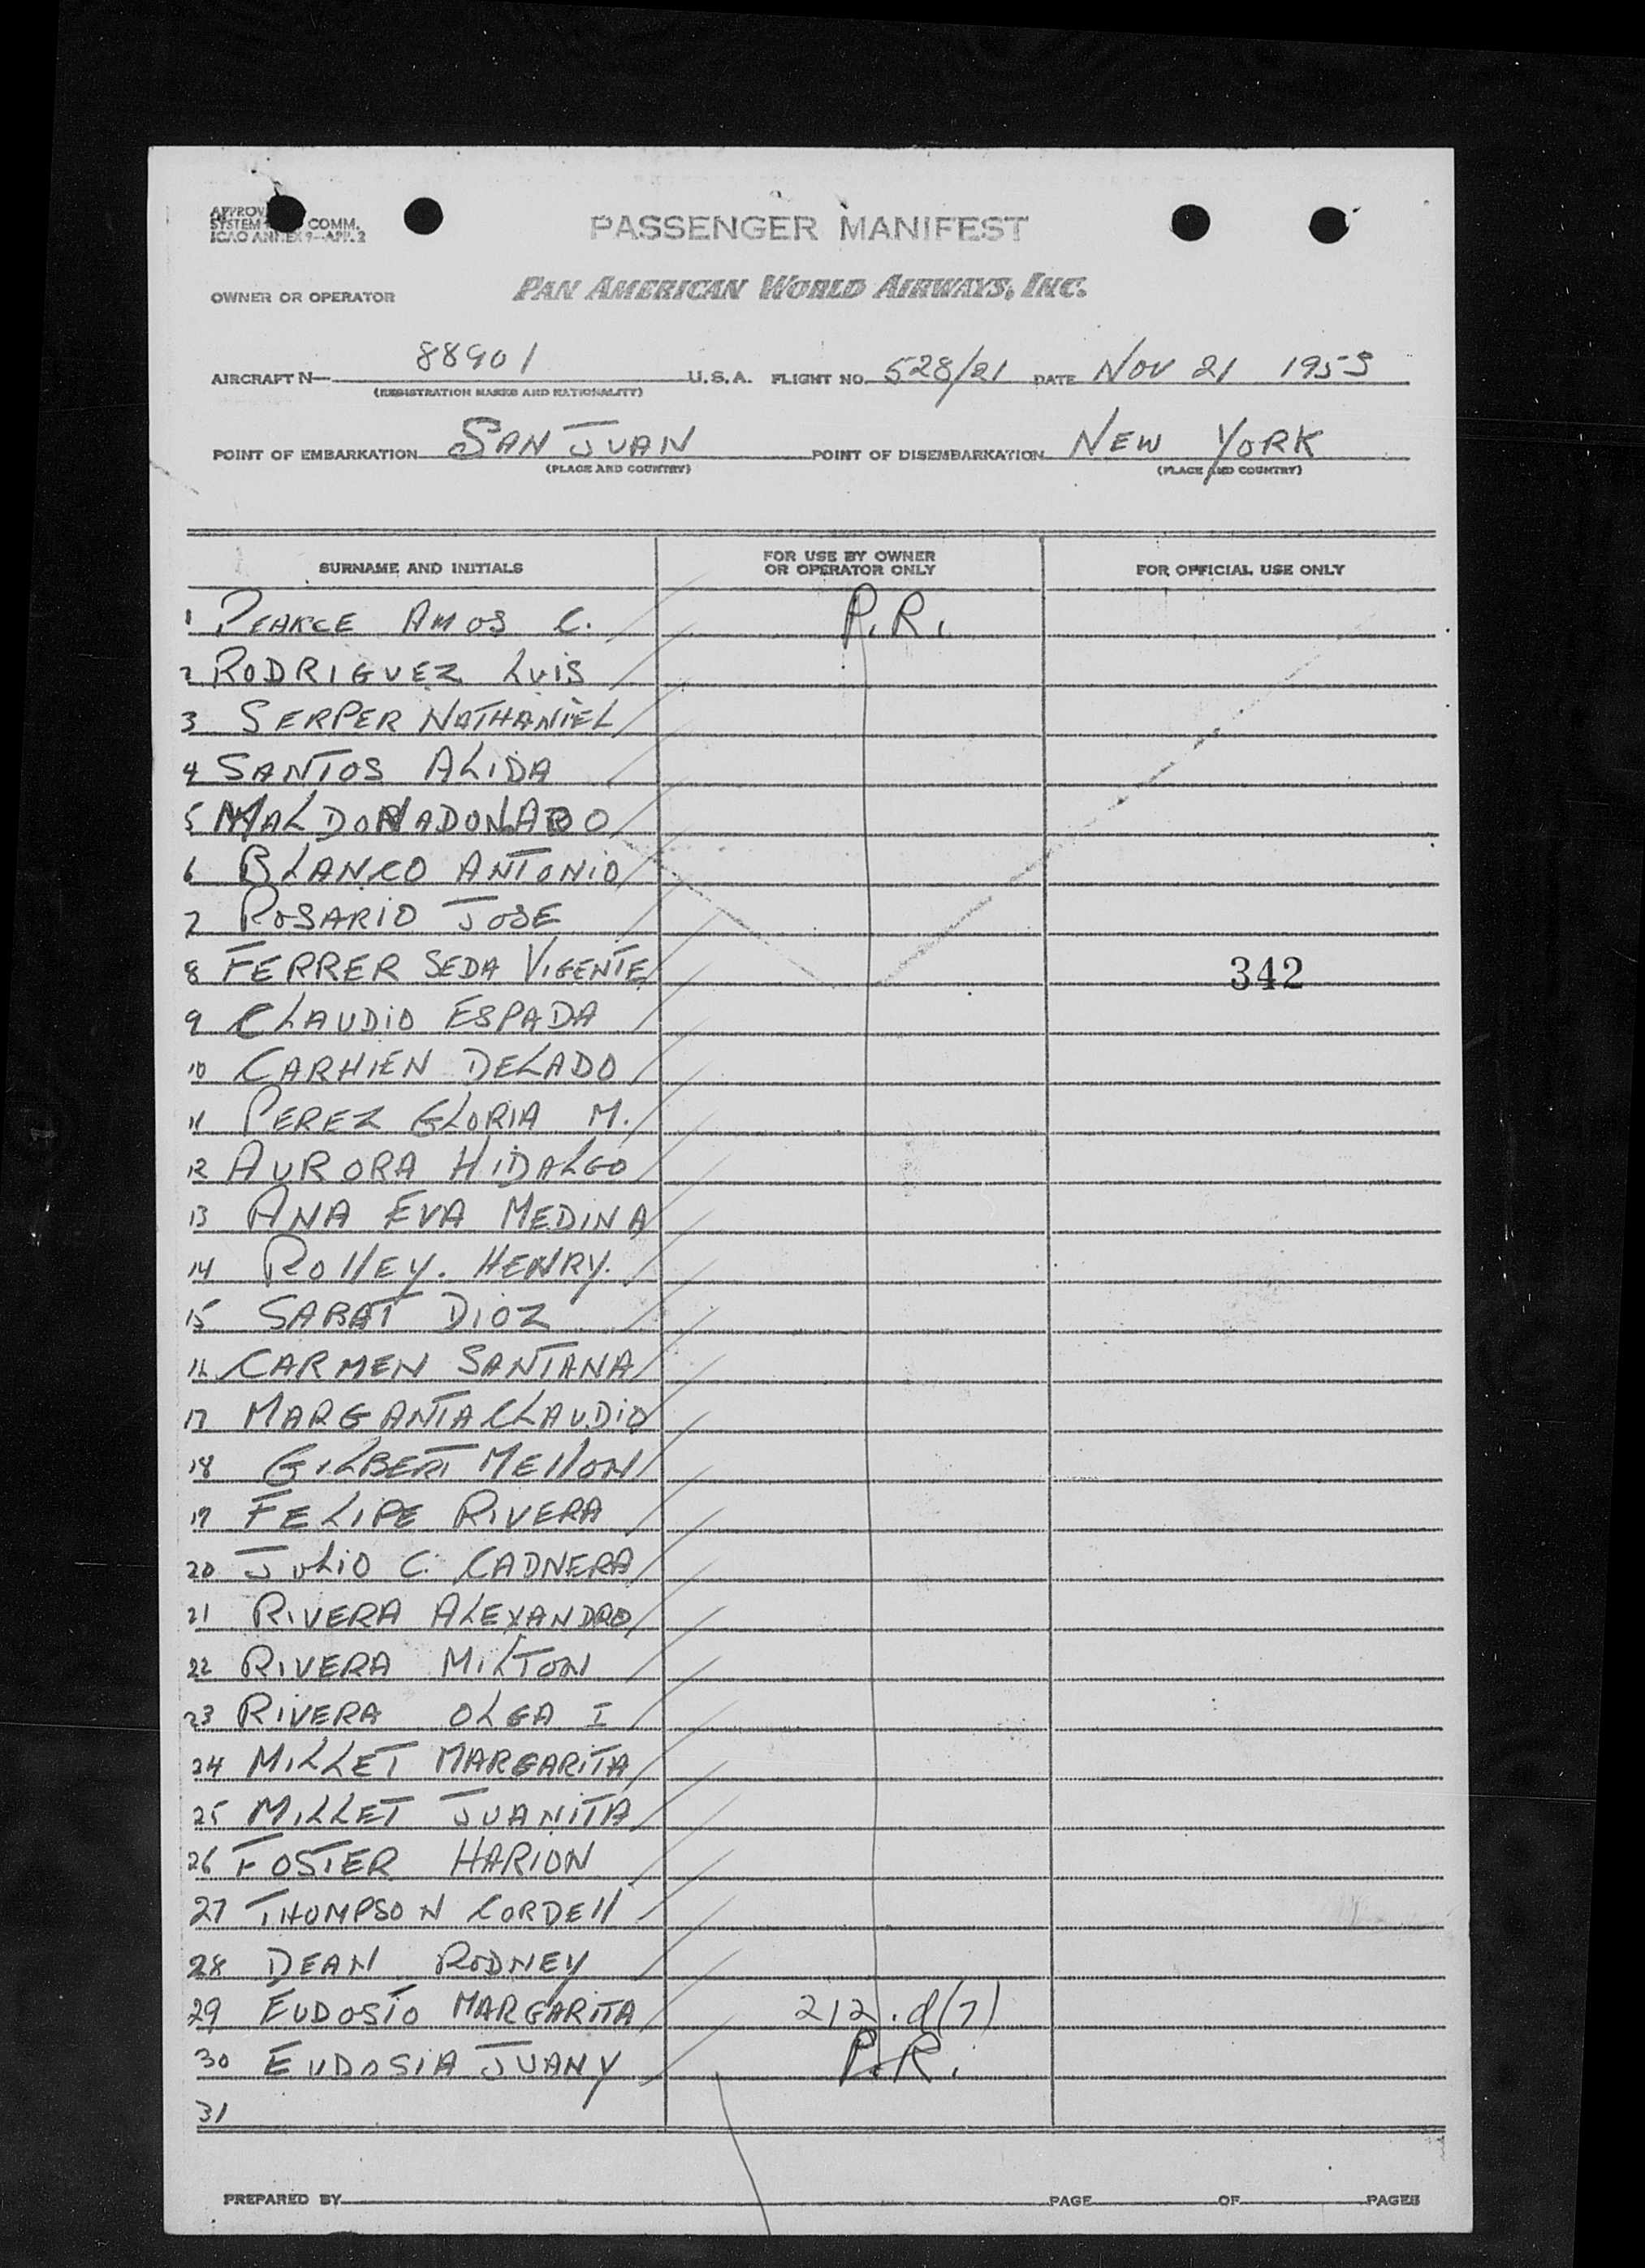 SYSTEM COMM.
ICAO ANNEX 9—APP. 2
PASSENGER MANIFEST
OWNER OR OPERATOR PAN AMERICAN WORLD AIRWAYS, INC.
AIRCRAFT N— 88901 U.S.A. FLIGHT NO. 528/21 DATE NOV 21 1955
(REGISTRATION MARKS AND NATIONALITY)
POINT OF EMBARKATION SAN JUAN POINT OF DISEMBARKATION NEW YORK
(PLACE AND COUNTRY) (PLACE AND COUNTRY)
SURNAME AND INITIALS FOR USE BY OWNER OR OPERATOR ONLY FOR OFFICIAL USE ONLY
1 PEARCE AMOS C. P.R.
2 RODRIGUEZ LUIS
3 SERPER NATHANIEL
4 SANTOS ALIDA
5
6 BLANCO ANTONIO
7 ROSARIO JOSE
8 FERRER SEDA VIGENTE 342
9 CLAUDIO ESPADA
10 CARHIEN DELADO
11 PEREZ GLORIA M.
12 AURORA HIDALGO
13 ANA EVA MEDINA
14 ROLLEY. HENRY.
15 SABAT DIOZ
16 CARMEN SANTANA
17 MARGANTA CLAUDIO
18 GILBERT MELLON
19 FELIPE RIVERA
20 JULIO C. CADNERA
21 RIVERA ALEXANDRO
22 RIVERA MILTON
23 RIVERA OLGA I
24 MILLET MARGARITA
25 MILLET JUANITA
26 FOSTER HARION
27 THOMPSON CORDELL
28 DEAN RODNEY
29 EUDOSIO MARGARITA 212.d(7)
30 EUDOSIA JUANY P.R.
31
PREPARED BY PAGE OF PAGES